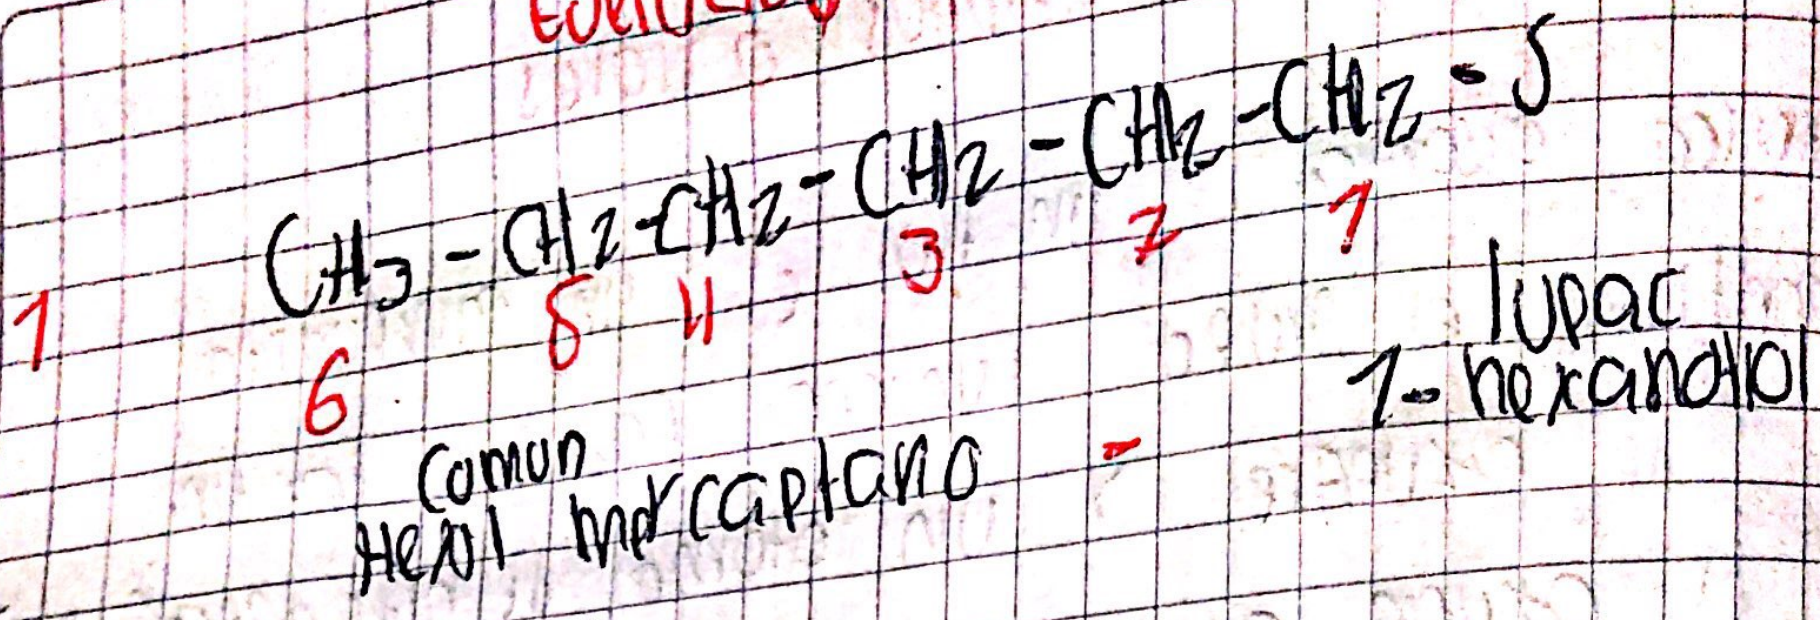 CH3 - CH2 - CH2 - CH2 - CH2 - CH2 - S
1 6 5 4 3 2 1
Iupac
1- hexanotiol
Comun
Hexil mercaptano -